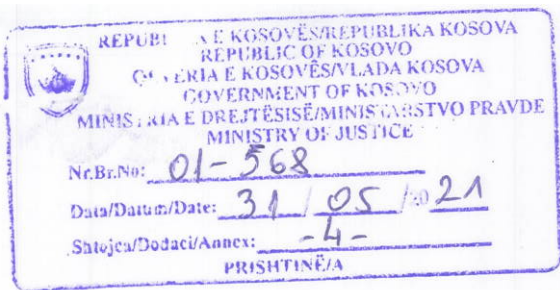 E KOSOVËS/REPUBLIKA KOSOVA
REPUBLIC OF KOSOVO
E KOSOVËS/VLADA KOSOVA
GOVERNMENT OF KOSOVO
E DREJTËSISË/MINISTARSTVO PRAVDE
MINISTRY OF JUSTICE
Nr.Br.No: 01-568
Data/Datum/Date: 31 / 05 /20 21
Shtojca/Dodaci/Annex: -4-
PRISHTINË/A